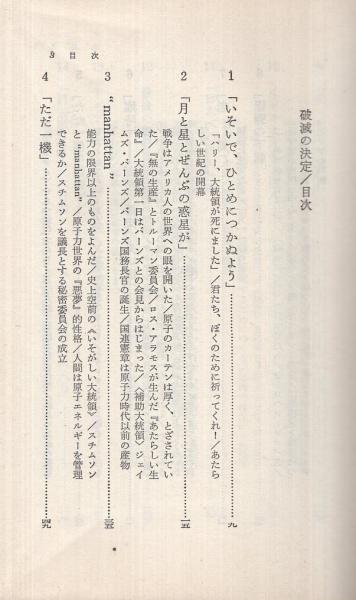 3 目 次
破滅の決定／目次
1 「いそいで、ひとめにつかぬよう」……………九
「ハリー、大統領が死にました」／君たち、ぼくのために祈ってくれ！／あたら
しい世紀の開幕
2 「月と星とぜんぶの惑星が」……………一五
戦争はアメリカ人の世界への眼を開いた／原子のカーテンは厚く、とざされてい
た／『無の生産』とトルーマン委員会／ロス・アラモスが生んだ『あたらしい生
命』／大統領第一日はバーンズとの会見からはじまった／〈補助大統領〉ジェイ
ムズ・バーンズ／バーンズ国務長官の誕生／国連憲章は原子力時代以前の産物
3 “manhattan”……………三五
能力の限界以上のものをよんだ／史上空前の〈いそがしい大統領〉／スチムソン
と“manhattan”／原子力世界の『悪夢』的性格／人間は原子エネルギーを管理
できるか／スチムソンを議長とする秘密委員会の成立
4 「ただ一機」……………四九